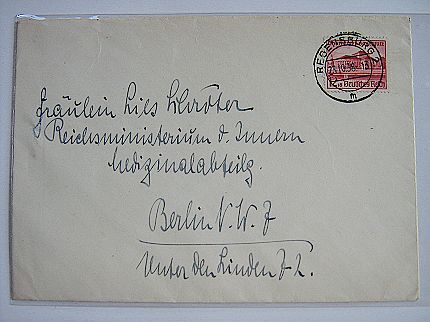 REGENSBURG 2
Deutsches Reich
Fräulein Lies Schröter
Reichsministerium d. Innern
Medizinalabteilg.
Berlin N.W.7
Unter den Linden 72.